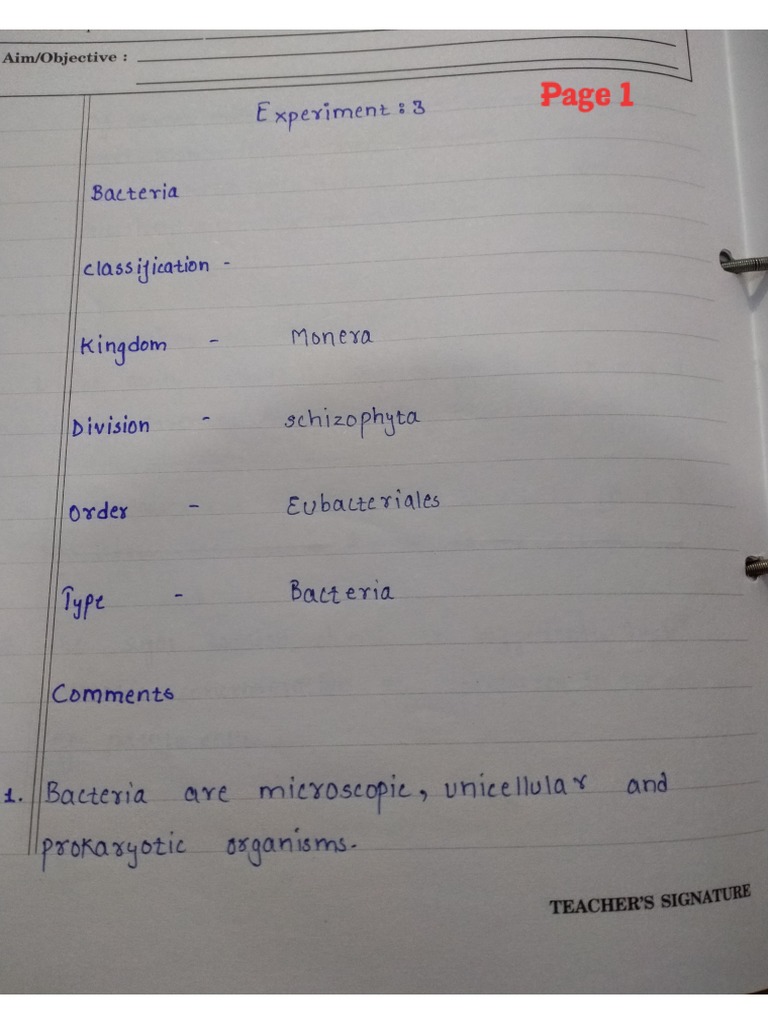 Aim/Objective :
Page 1
Experiment : 3
Bacteria
Classification -
Kingdom - Monera
Division - Schizophyta
Order - Eubacteriales
Type - Bacteria
Comments
1. Bacteria are microscopic, unicellular and
prokaryotic organisms.
TEACHER'S SIGNATURE